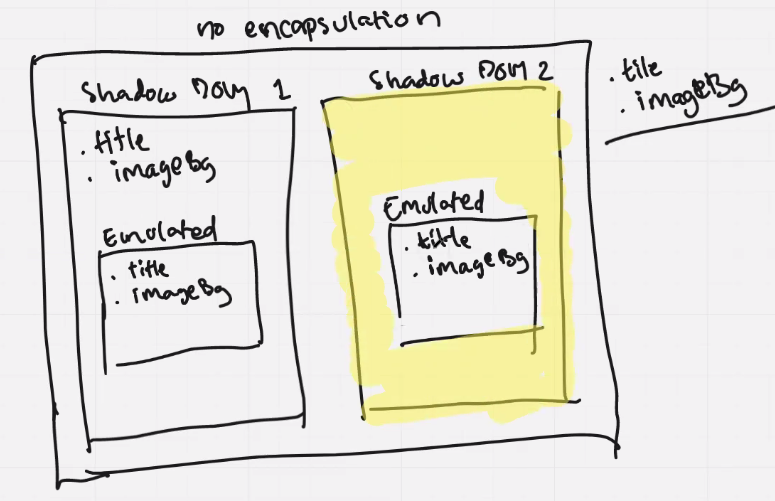 no encapsulation
Shadow DOM 1
. title
. imageBg
Emulated
. title
. imageBg
Shadow DOM 2
Emulated
. title
. imageBg
. tile
. imageBg